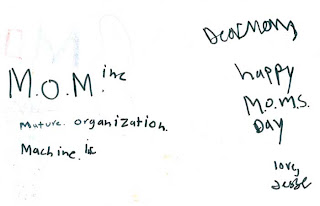 M.O.M. inc
Mature. organization.
Machine. is
Dear Mom,
happy
M.O.M.S.
DAY
love,
Jesse